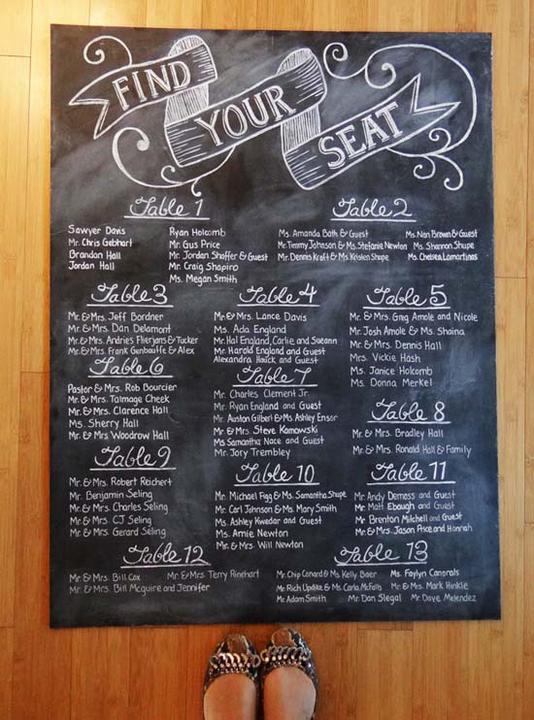 FIND
YOUR
SEAT
Table 1
Sawyer Davis
Mr. Chris Gebhart
Brandon Hall
Jordan Hall
Ryan Holcomb
Mr. Gus Price
Mr. Jordan Shoffer & Guest
Mr. Craig Shapiro
Ms. Megan Smith
Table 2
Ms. Amanda Bath & Guest
Mr. Timmy Johnson & Ms. Stefanie Newton
Mr. Dennis Kraft & Ms Kristen Shupe
Ms. Nan Brown & Guest
Ms. Shannon Shupe
Ms. Chelsea Lamartinas
Table 3
Mr. & Mrs. Jeff Bordner
Mr. & Mrs. Dan Delamont
Mr. & Mrs. Andries Flierjans & Tucker
Mr. & Mrs. Frank & Alex
Table 4
Mr. & Mrs. Lance Davis
Ms. Ada England
Mr. Hal England, Carlie and Sueann
Mr. Harold England and Guest
Alexandra Hauck and Guest
Table 5
Mr. & Mrs. Greg Amole and Nicole
Mr. Josh Amole & Ms. Shaina
Mr. & Mrs. Dennis Hall
Mrs. Vickie Hash
Ms. Janice Holcomb
Ms. Donna Merkel
Table 6
Pastor & Mrs. Rob Bourcier
Mr. & Mrs. Talmage Cheek
Mr. & Mrs. Clarence Hall
Ms. Sherry Hall
Mr. & Mrs Woodrow Hall
Table 7
Mr. Charles Clement Jr.
Mr. Ryan England and Guest
Mr. Austen Gilbert & Ms Ashley Ensor
Mr. & Mrs. Steve Kamowski
Ms Samantha Nace and Guest
Mr. Jory Trembley
Table 8
Mr. & Mrs. Bradley Hall
Mr. & Mrs. Ronald Hall & Family
Table 9
Mr. & Mrs. Robert Reichert
Mr. Benjamin Seling
Mr. & Mrs. Charles Seling
Mr. & Mrs. CJ Seling
Mr. & Mrs. Gerard Seling
Table 10
Mr. Michael Figg & Ms. Samantha Shupe
Mr. Carl Johnson & Ms. Mary Smith
Ms. Ashley Kwedar and Guest
Ms. Amie Newton
Mr. & Mrs. Will Newton
Table 11
Mr. Andy Demoss and Guest
Mr. Matt Ebaugh and Guest
Mr. Brenton Mitchell and Guest
Mr. & Mrs. Jason Price and Hannah
Table 12
Mr. & Mrs. Bill Cox
Mr. & Mrs. Terry Rinehart
Mr. & Mrs. Bill Mcguire and Jennifer
Table 13
Mr. Chip Conard & Ms. Kelly Baer
Ms. Faylyn Canorals
Mr. Rich Updike & Ms. Carla McFalls
Mr. & Mrs. Mark Hinkle
Mr. Adam Smith
Mr. Dan Slegal
Mr. Dave Melendez